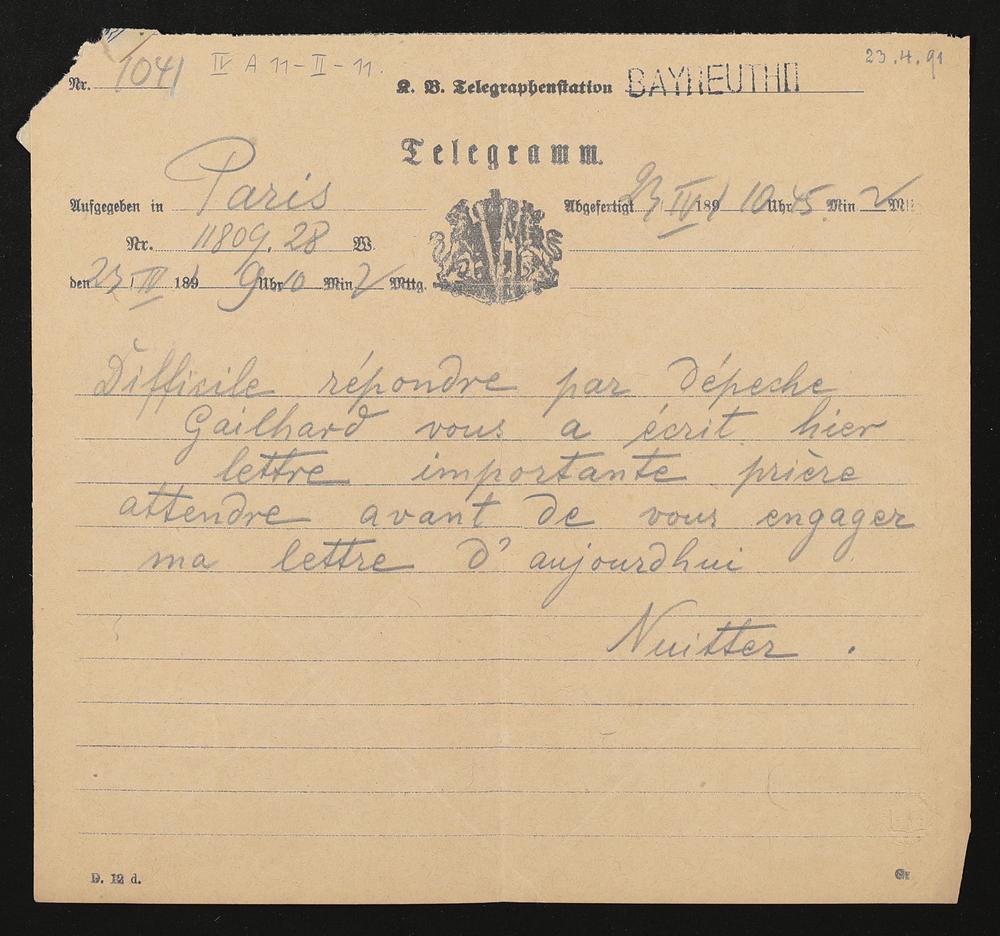 Nr. 1041 IV A 11-II-11. 23.4.91
K. B. Telegraphenstation BAYREUTH II
Telegramm.
Aufgegeben in Paris
Abgefertigt 23/IV 1891 10 Uhr 45 Min Mttg
Nr. 11809. 28 W.
den 23/IV 1891 9 Uhr 10 Min Mttg.
Difficile répondre par dépeche
Gailhard vous a écrit hier
lettre importante prière
attendre avant de vous engager
ma lettre d'aujourdhui
Nuitter.
D. 12 d.